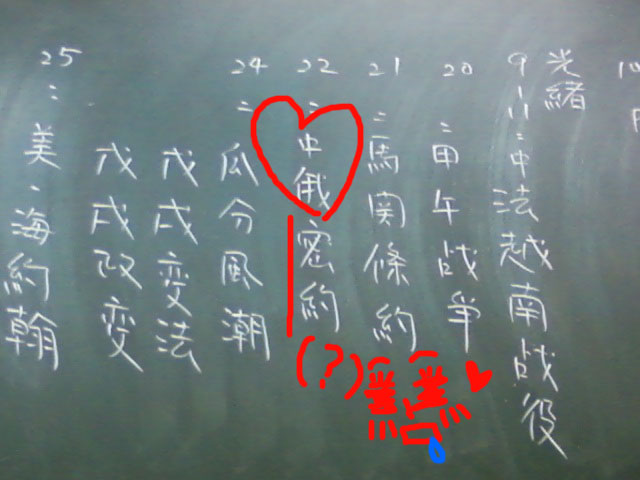 10
光緒
9-11:中法越南战役
20:甲午战争
21:馬関條約
22:中俄密約
(?)
24:瓜分風潮
戊戌变法
戊戌政变
25:美.海約翰